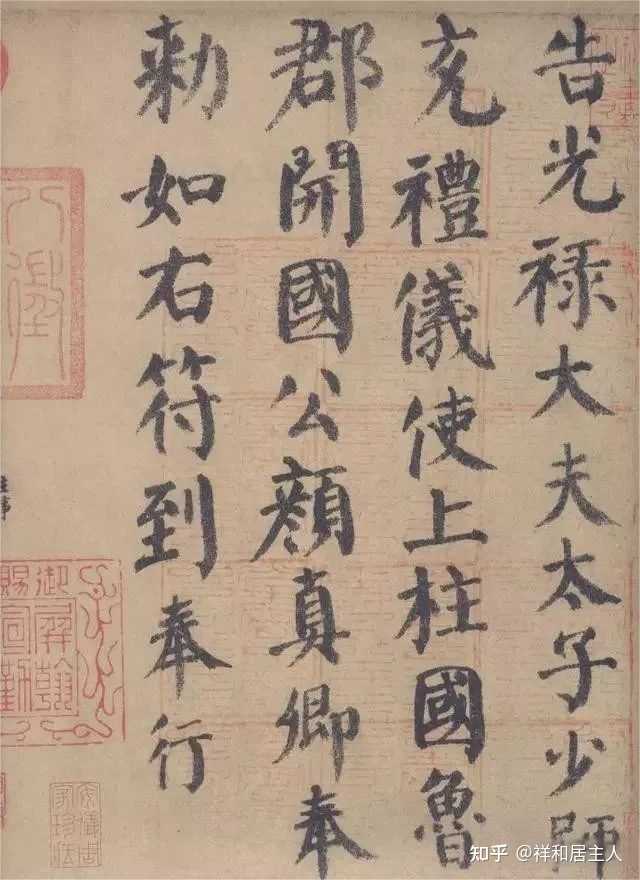 告光禄大夫太子少師
充禮儀使上柱國魯
郡開國公顔真卿奉
勑如右符到奉行
知乎 @祥和居主人